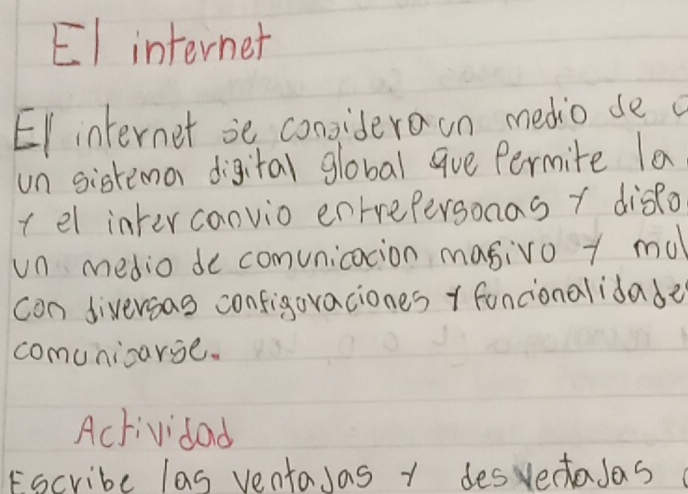 El internet
El internet se considera un medio de c
un sistema digital global que Permite la
y el intercanvio entre Personas y dispo
un medio de comunicacion masivo y mul
con diversas configuraciones y funcionalidades
comunicarse.
Actividad
Escribe las ventajas y desventajas